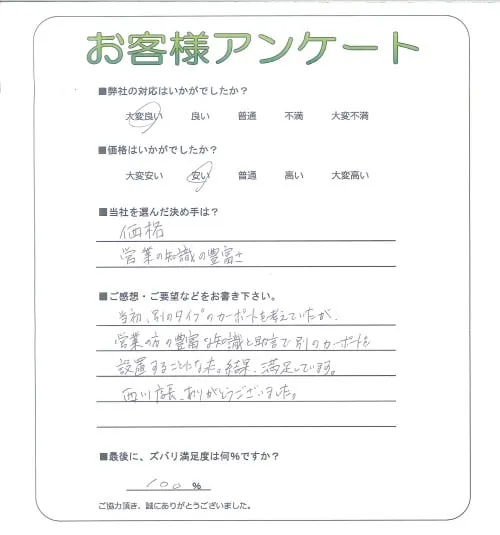 お客様アンケート
■弊社の対応はいかがでしたか？
大変良い 良い 普通 不満 大変不満
■価格はいかがでしたか？
大変安い 安い 普通 高い 大変高い
■当社を選んだ決め手は？
価格
営業の知識の豊富さ
■ご感想・ご要望などをお書き下さい。
当初、別のタイプのカーポートを考えていたが、
営業の方の豊富な知識と助言で別のカーポートを
設置することになった。結果、満足しています。
西川店長、ありがとうございました。
■最後に、ズバリ満足度は何％ですか？
100 ％
ご協力頂き、誠にありがとうございました。